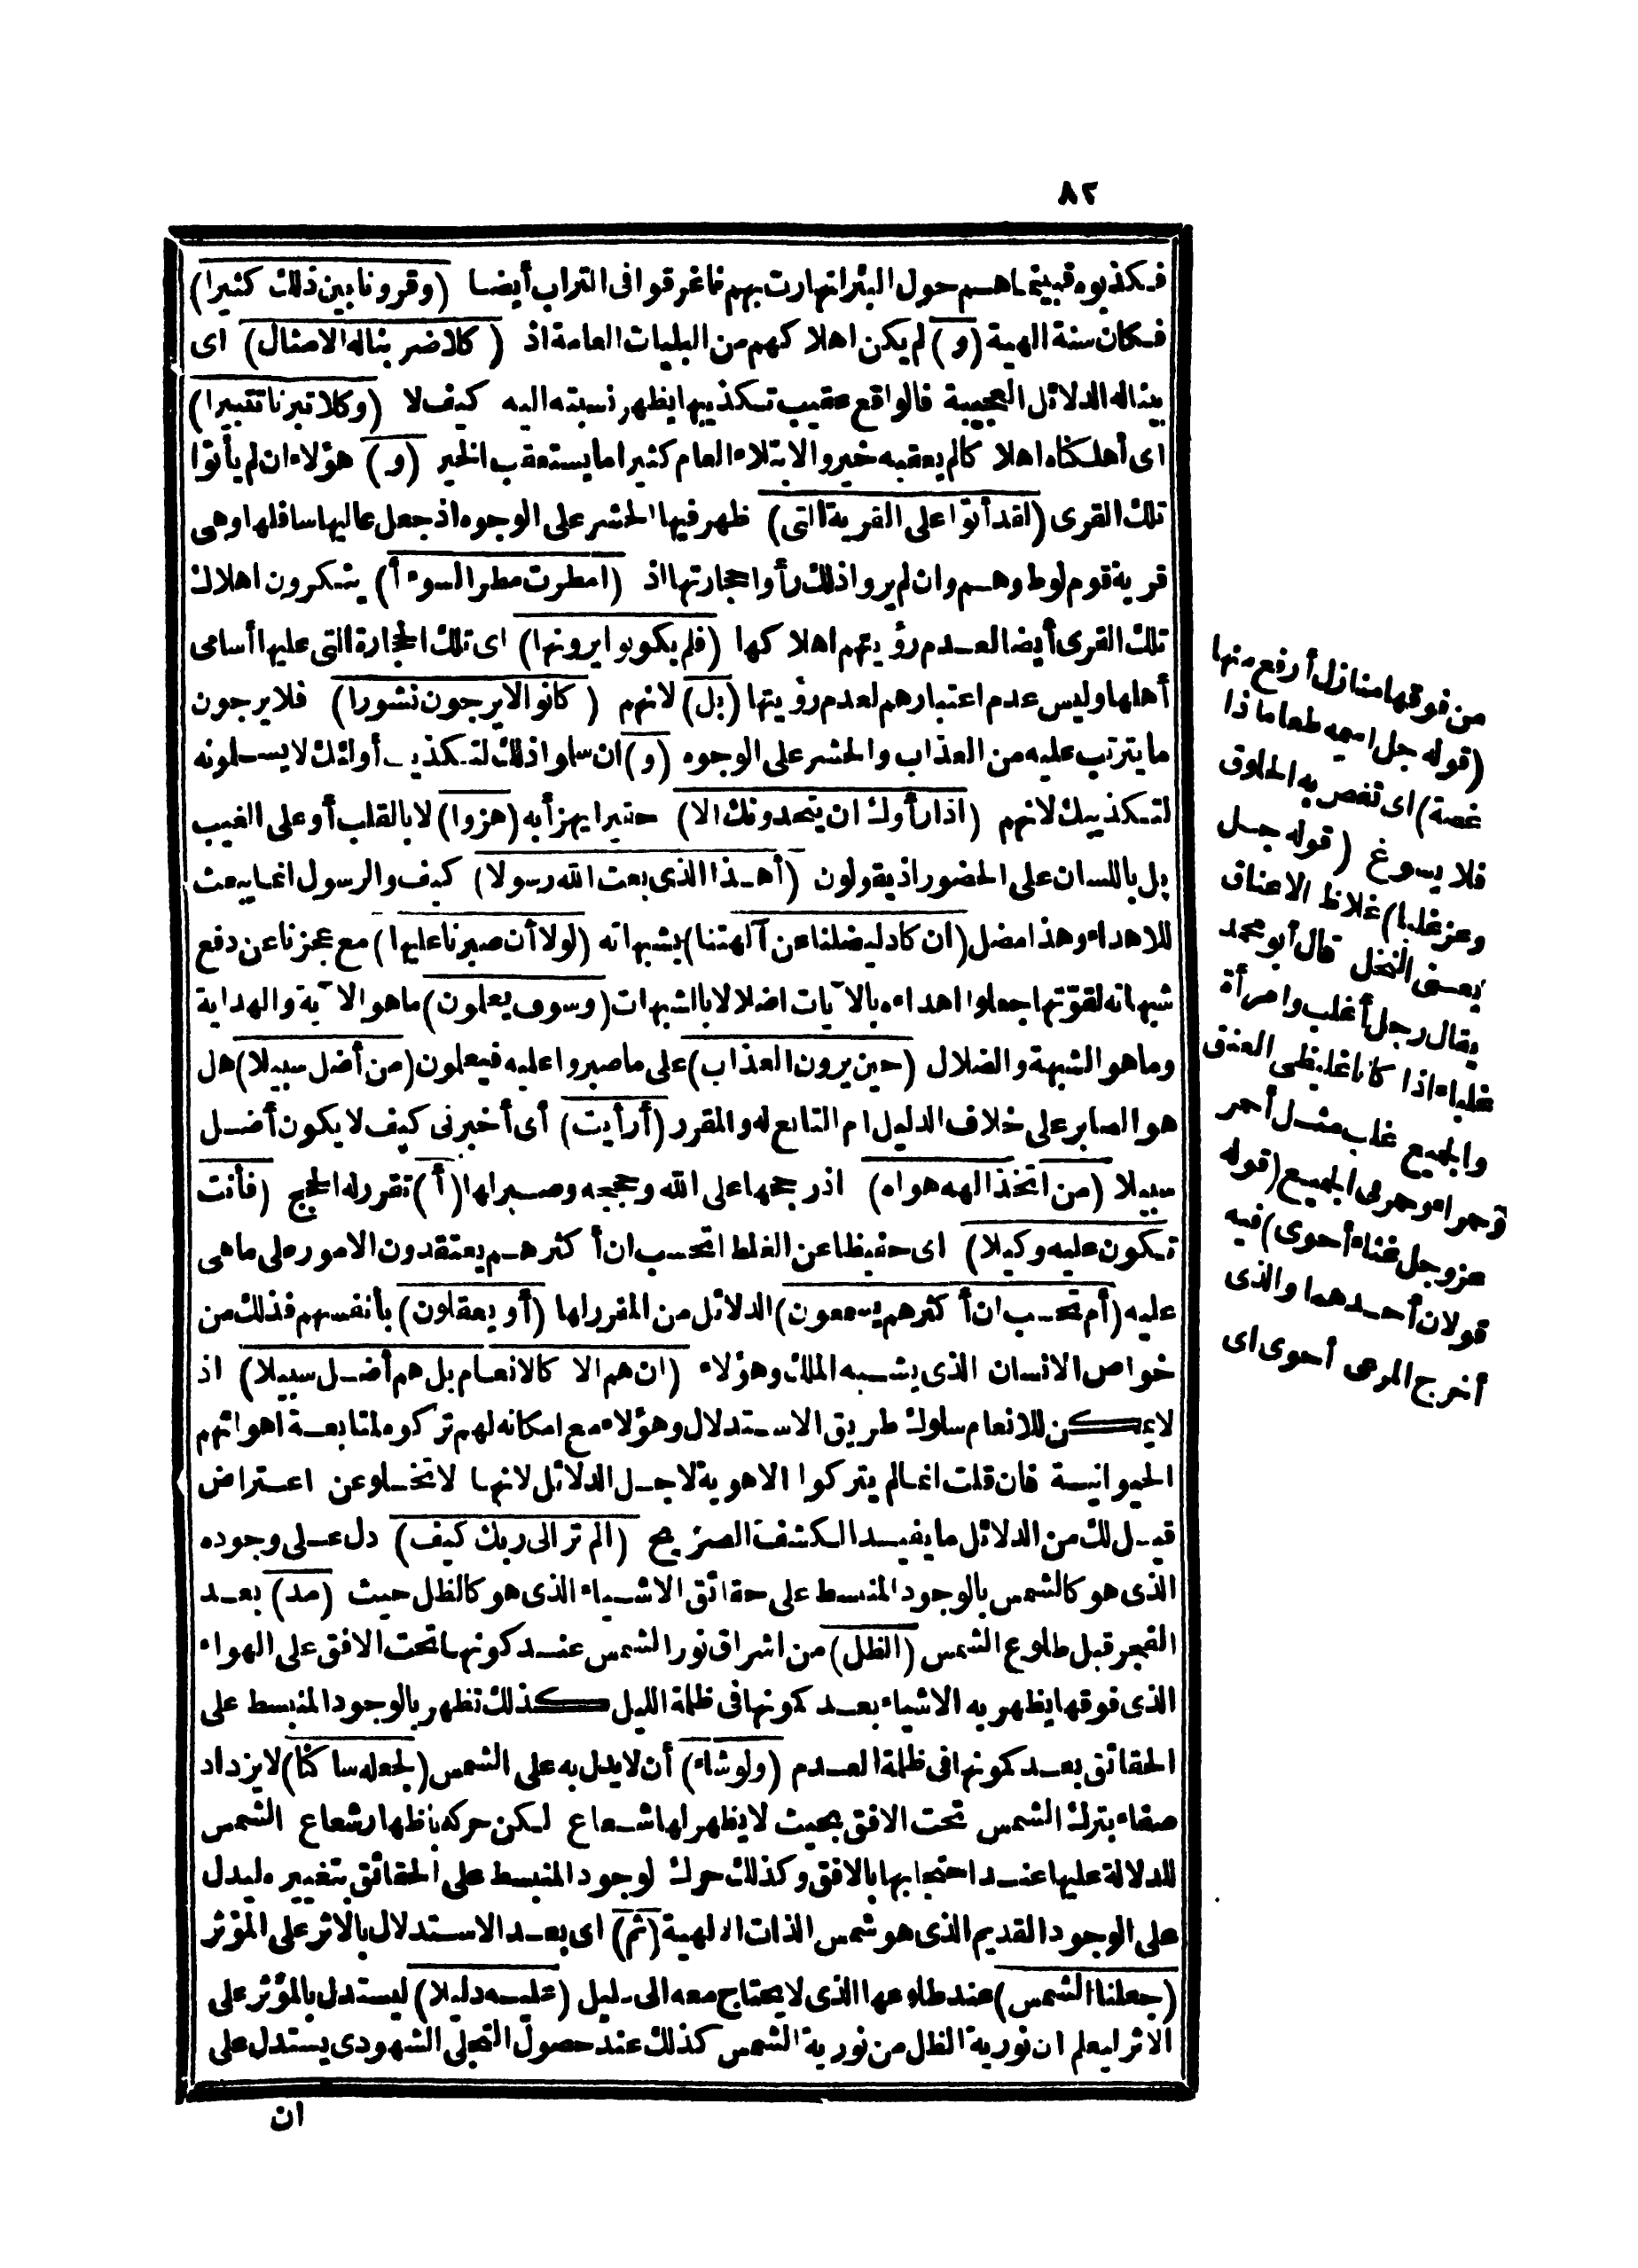 ٨٢
فكذبوه فبينماهم حول البئر انهارت بهم فاغرقوا فى التراب أيضا (وقرونا بين ذلك كثيرا)
فكان سنة الهية (و) لم يكن اهلاكهم من البليات العامة اذ (كلا ضربنا له الامثال) اى
بينا له الدلائل العجيبة فالواقع عقيب تكذيبها يظهر نسبته اليه كيف لا (وكلا تبرنا تتبيرا)
اى أهلكناه اهلاكا لم يعقبه خير والابتلاء العام كثيرا ما يستعقب الخير (و) هؤلاء ان لم يأتوا
تلك القرى (لقد أتوا على القرية التى) ظهر فيها الحشر على الوجوه اذ جعل عاليها سافلها وهى
قرية قوم لوط وهم وان لم يروا ذلك رأوا حجارتها اذ (امطرت مطر السوء أ) ينكرون اهلاك
تلك القرى أيضا لعدم رؤيتهم اهلاكها (فلم يكونوا يرونها) اى تلك الحجارة التى عليها أسامى
أهلها وليس عدم اعتبارهم لعدم رؤيتها (بل) لانهم (كانوا لا يرجون نشورا) فلا يرجون
ما يترتب عليه من العذاب والحشر على الوجوه (و) ان سلوا ذلك لتكذيب أولئك لا يسلمونه
لتكذيبك لانهم (اذا رأوك ان يتخذونك الا) حقيرا يهزأ به (هزوا) لا بالقلب أو على الغيب
بل باللسان على الحضور اذ يقولون (أهذا الذى بعث الله رسولا) كيف والرسول انما يبعث
للاهداء وهذا مضل (ان كاد ليضلنا عن آلهتنا) بشبهاته (لولا أن صبرنا عليها) مع عجزنا عن دفع
شبهاته لقوتها جعلوا اهداءه بالآيات اضلالا بالشبهات (وسوف يعلمون) ما هو الآية والهداية
وما هو الشبهة والضلال (حين يرون العذاب) على ما صبروا عليه فيعلمون (من أضل سبيلا) هل
هو الصابر على خلاف الدليل ام التابع له والمقرر (أرأيت) أى أخبرنى كيف لا يكون أضل
سبيلا (من اتخذ الهه هواه) اذ رجحها على الله وحججه وصبر لها (أ) تقرر له الحجج (فأنت
تكون عليه وكيلا) اى حفيظا عن الغلط اتحسب ان أكثرهم يعتقدون الامور على ما هى
عليه (أم تحسب ان أكثرهم يسمعون) الدلائل من المقرر لها (أو يعقلون) بأنفسهم فذلك من
خواص الانسان الذى يشبه الملك وهؤلاء (ان هم الا كالانعام بل هم أضل سبيلا) اذ
لا يمكن للانعام سلوك طريق الاستدلال وهؤلاء مع امكانه لهم تركوه لمتابعة اهوائهم
الحيوانية فان قلت انما لم يتركوا الاهوية لاجل الدلائل لانها لا تخلو عن اعتراض
قيل لك من الدلائل ما يفيد الكشف الصريح (الم تر الى ربك كيف) دل على وجوده
الذى هو كالشمس بالوجود المنبسط على حقائق الاشياء الذى هو كالظل حيث (مد) بعد
الفجر قبل طلوع الشمس (الظل) من اشراق نور الشمس عند كونها تحت الافق على الهواء
الذى فوقها يظهر به الاشياء بعد كمونها فى ظلمة الليل كذلك تظهر بالوجود المنبسط على
الحقائق بعد كمونها فى ظلمة العدم (ولو شاء) أن لا يدل به على الشمس (لجعله ساكنا) لا يزداد
صفاء بترك الشمس تحت الافق بحيث لا يظهر لها شعاع لكن حركه باظهار شعاع الشمس
للدلالة عليها عند احتجابها بالافق وكذلك حرك لوجود المنبسط على الحقائق بتغييره ليدل
على الوجود القديم الذى هو شمس الذات الالهية (ثم) اى بعد الاستدلال بالاثر على المؤثر
(جعلنا الشمس) عند طلوعها الذى لا يحتاج معه الى دليل (عليه دليلا) ليستدل بالمؤثر على
الاثر ليعلم ان نورية الظل من نورية الشمس كذلك عند حصول التجلى الشهودى يستدل على
ان
من فوقها منازل أرفع منها
(قوله جل اسمه طعاما ذا
غصة) اى تغص به الحلوق
فلا يسوغ (قوله جل
وعز غلبا) غلاظ الاعناق
يعنى النخل قال أبو محمد
يقال رجل أغلب وامرأة
غلباء اذا كانا غليظى العنق
والجميع غلب مثل أحمر
وحمراء وحمر فى الجميع (قوله
عز وجل غثاء أحوى) فيه
قولان أحدهما والذى
أخرج المرعى أحوى اى